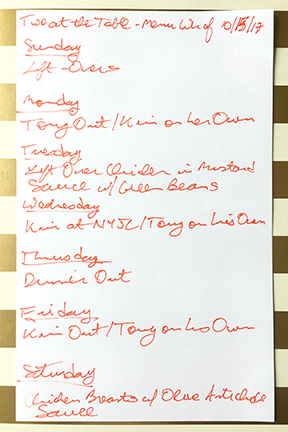 Two at the Table - Menu Wk of 10/15/17
Sunday
Left-Overs
Monday
Tony Out/Kim on her Own
Tuesday
Left Over Chicken in Mustard
Sauce w/Green Beans
Wednesday
Kim at NYJL/Tony on his Own
Thursday
Dinner Out
Friday
Kim Out/Tony on his Own
Saturday
Chicken Breasts w/ Olive Artichoke
Sauce